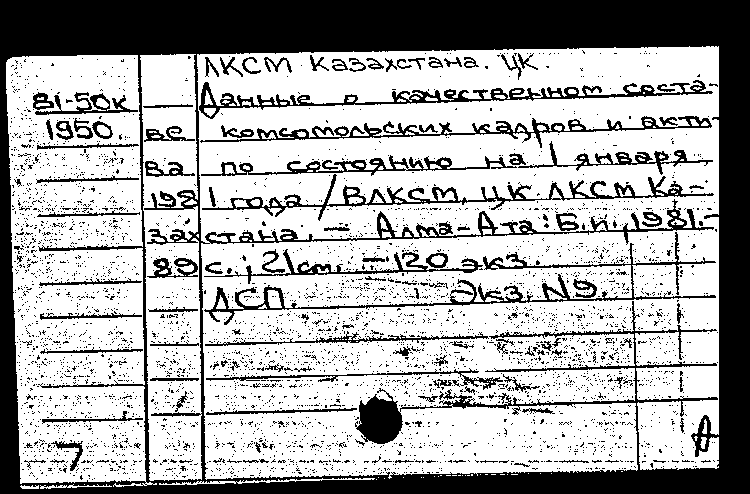 ЛКСМ Казахстана. ЦК.
81-50к
1950.
Данные о качественном соста-
ве комсомольских кадров и акти-
ва по состоянию на 1 января
1981 года / ВЛКСМ, ЦК ЛКСМ Ка-
захстана. — Алма-Ата: Б.и., 1981.-
89 с.; 21 см. — 120 экз.
ДСП. Экз. №9.
7
А